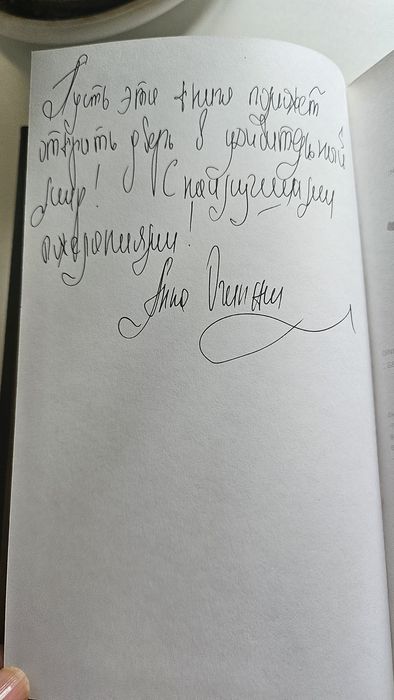 Пусть эта книга поможет
открыть дверь в удивительный
мир! С наилучшими
пожеланиями!
Анна